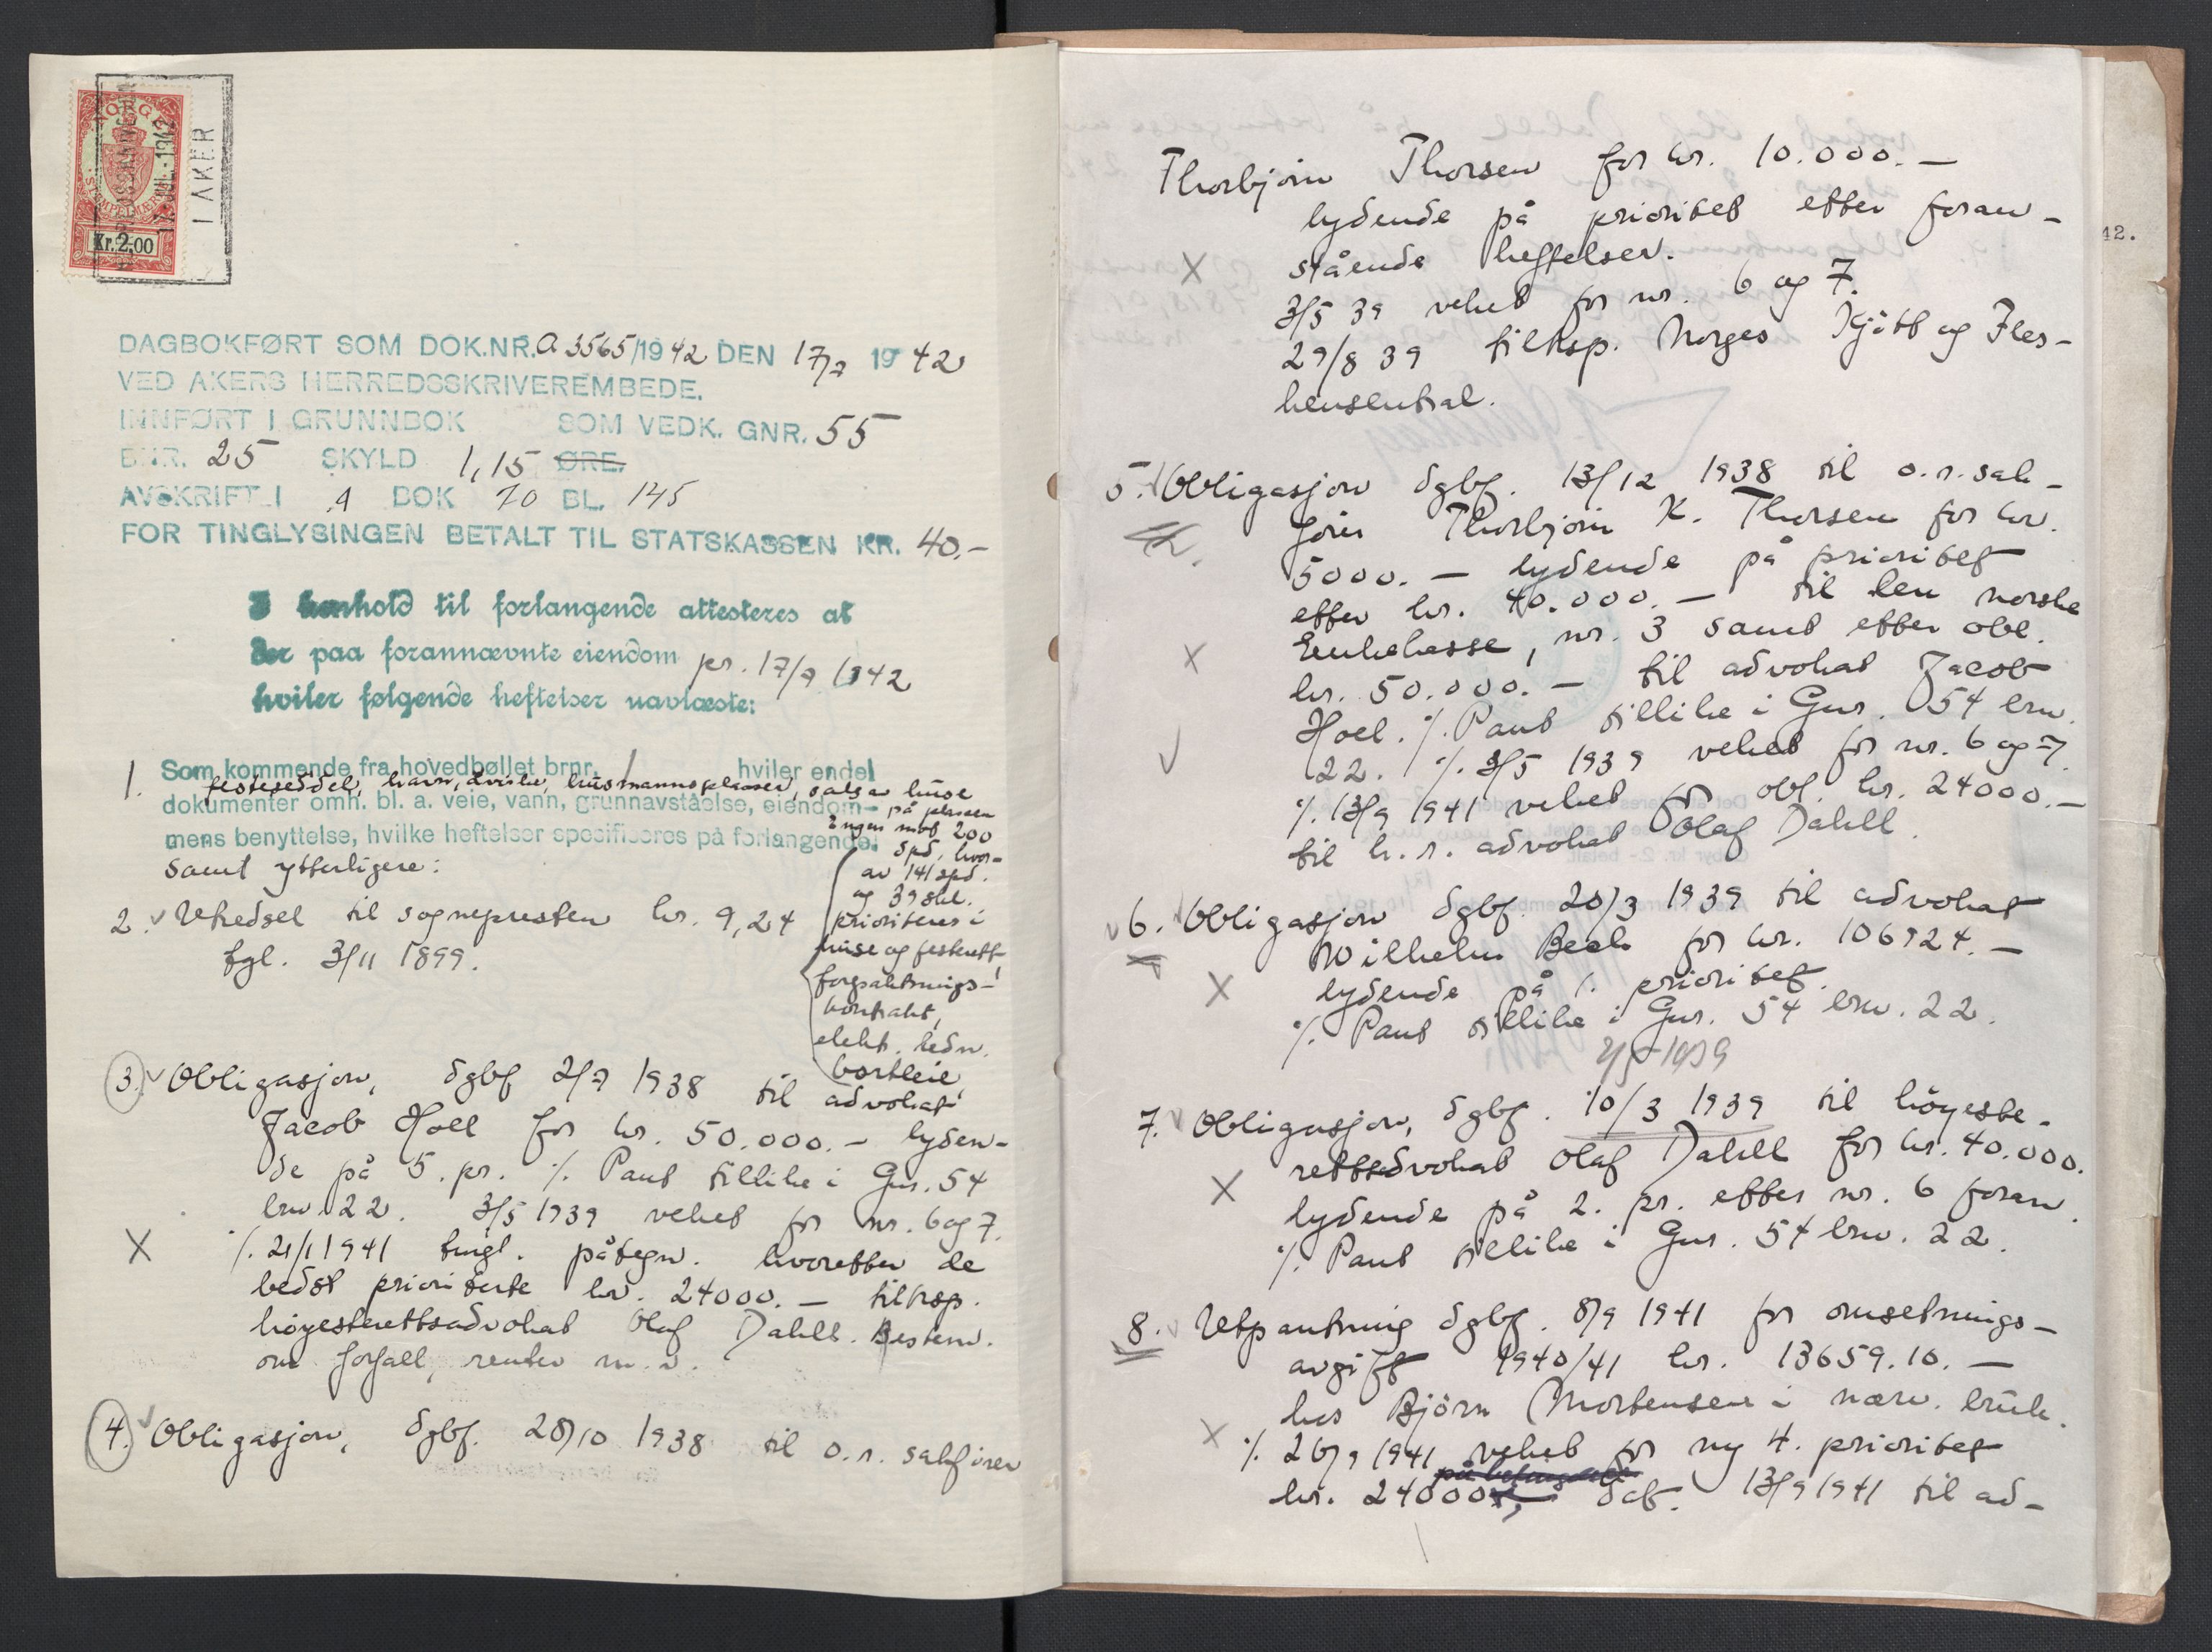 NORGE
STEMPELMÆRKE
Kr. 2,00
17. JUL. 1942
I AKER
DAGBOKFØRT SOM DOK.NR. A 3565/1942 DEN 17/7 1942
VED AKERS HERREDSSKRIVEREMBEDE.
INNFØRT I GRUNNBOK SOM VEDK. GNR. 55
BNR. 25 SKYLD 1,15 ØRE.
AVSKRIFT I A BOK 70 BL. 145
FOR TINGLYSINGEN BETALT TIL STATSKASSEN KR. 40.-
I henhold til forlangende attesteres at
der paa forannævnte eiendom pr. 17/7 1942
hviler følgende heftelser uavlæste:
1. Som kommende fra hovedbøllet brnr. 1 hviler endel
festeseddel, havn, husmannsplasser, salg av huse
dokumenter omh. bl. a. veie, vann, grunnavståelse, eiendom- på plassen
Engen mot 200
mens benyttelse, hvilke heftelser spesifiseres på forlangende.
spd. hvor-
samt ytterligere:
av 141 spd.
og 39 skl.
prioriteres i
huse og festerett,
forpaktnings-
kontrakt,
elekt. ledn.
bortleie
2. Utkedsel til sognepresten kr. 9,24
tgl. 3/11 1899.
3. Obligasjon, dgbf 2/7 1938 til advokat
Jacob Hoel for kr. 50.000.- lyden-
de på 5. pr. ./. Pant tillike i Gnr. 54
brn 22. 3/5 1939 veket for nr. 6 og 7.
X ./. 21/1 1941 tingl. påtegn. hvoretter de
bedst prioriterte kr. 24000.- tiltrsp.
höyesterettsadvokat Olaf Dahll. Bestem.
om forfall, renter m.v.
4. Obligasjon, dgbf. 28/10 1938 til o.r. sakförer
Thorbjörn Thorsen for kr. 10.000.-
lydende på prioritet efter foran-
X stående heftelser.
3/5 39 veket for nr. 6 og 7.
29/8 39 tiltrsp. Norges Kjött og Fles-
kesentral.
5. Obligasjon dgbf. 13/12 1938 til o.r. sak-
förer Thorbjörn K. Thorsen for kr.
5000.- lydende på prioritet
efter kr. 40.000.- til den norske
Enkekasse, nr. 3 samt efter obl.
X kr. 50.000.- til advokat Jacob
Hoel. ./. Pant tillike i Gnr. 54 brn.
22. ./. 3/5 1939 veket for nr. 6 og 7.
./. 13/9 1941 veket for obl. kr. 24000.-
til h.r. advokat Olaf Dahll.
6. Obligasjon dgbf. 20/3 1939 til advokat
Wilhelm Beck for kr. 106924.-
X lydende på 1. prioritet.
./. Pant tillike i Gnr. 54 brn. 22.
2/5-1939
7. Obligasjon, dgbf. 10/3 1939 til höyeste-
rettsadvokat Olaf Dahll for kr. 40.000.
X lydende på 2. pr. efter nr. 6 foran.
./. Pant tillike i Gnr. 54 brn. 22.
8. Utpantning dgbf. 8/9 1941 for omsetnings-
avgift 1940/41 kr. 13659.10.-
hos Björn Mortensen i nærv. bruk.
X ./. 26/9 1941 veket for ny 4. prioritet
kr. 24000.- dat. 13/9 1941 til ad-
42.